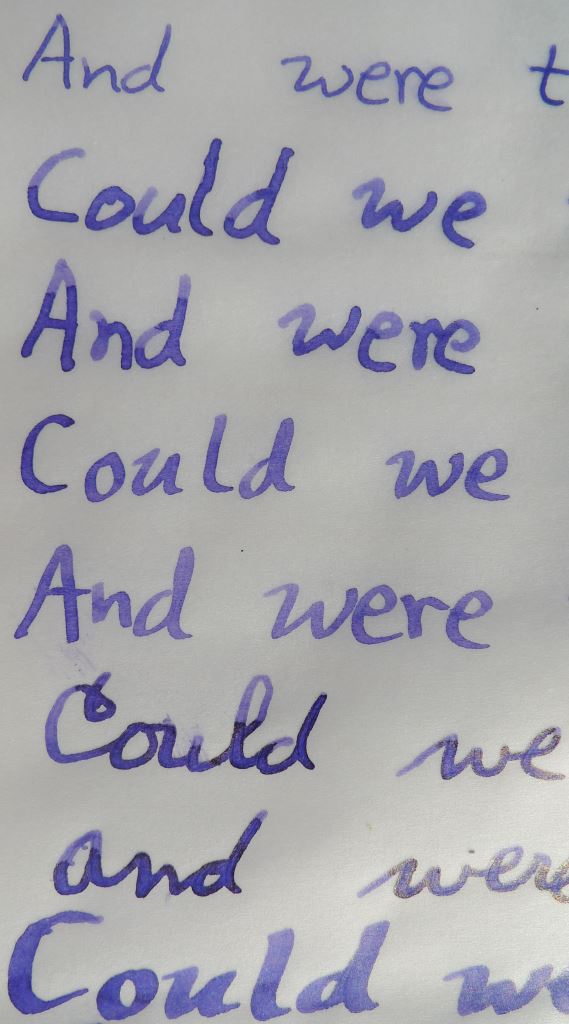 And were t
Could we
And were
Could we
And were
Could we
and were
Could we